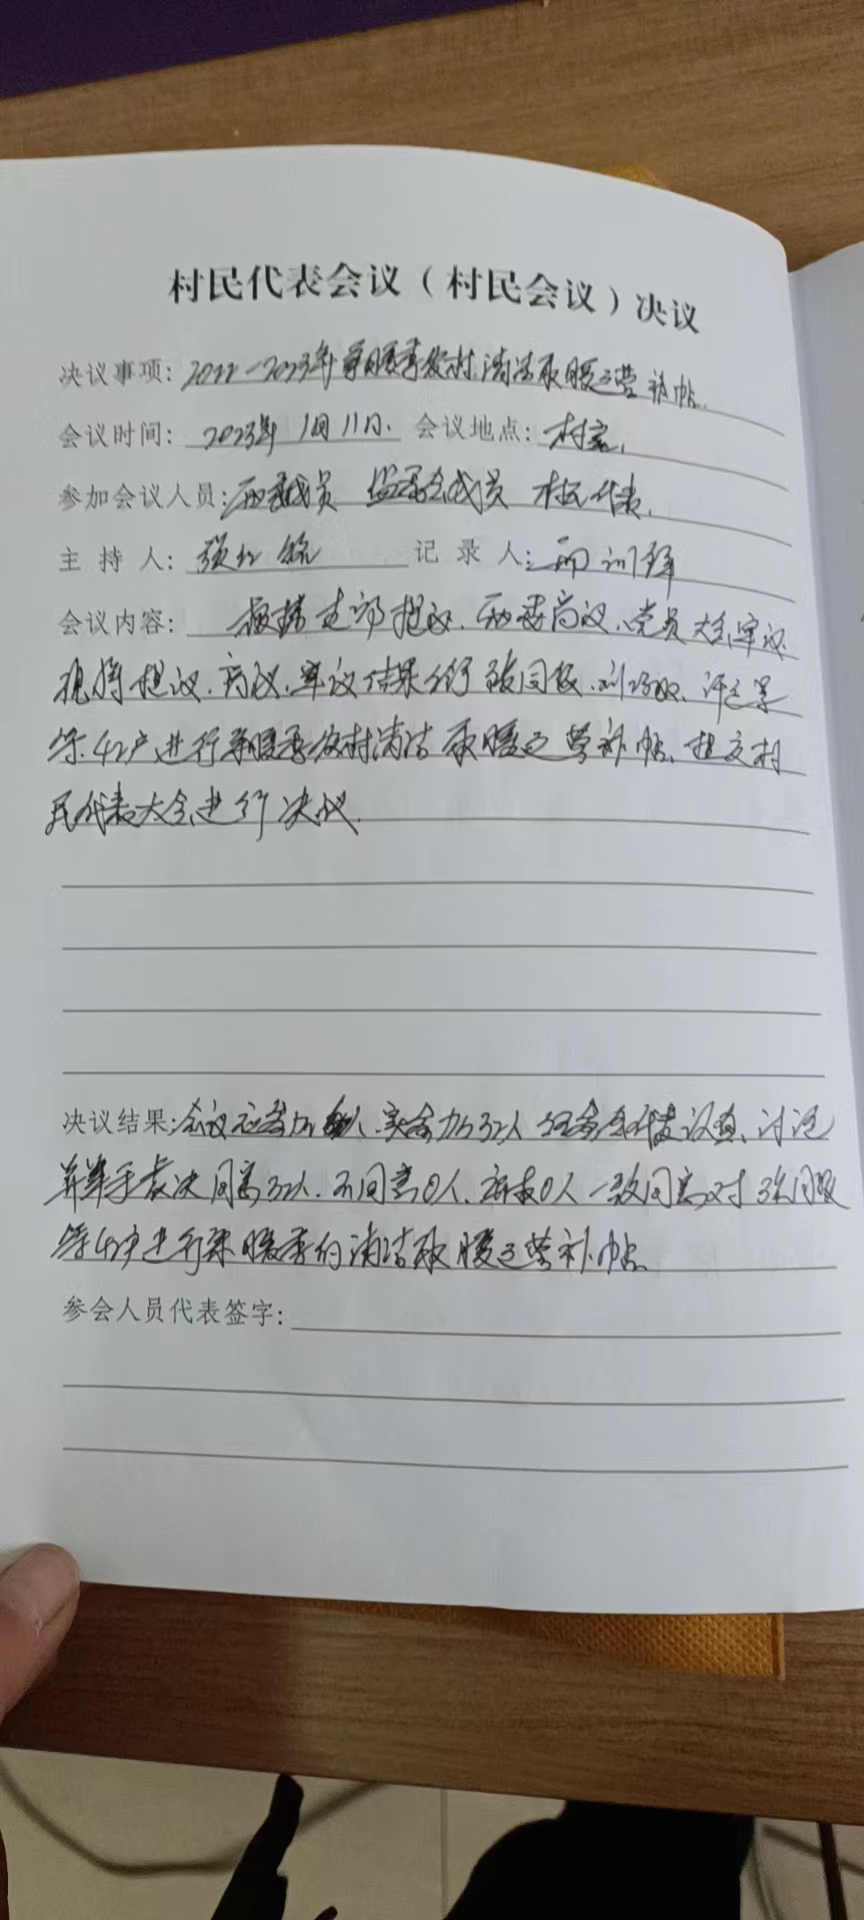 村民代表会议（村民会议）决议
决议事项：2022-2023年采暖季农村清洁取暖运营补帖.
会议时间：2023年1月11日. 会议地点：村室.
参加会议人员：两委成员 监委会成员 村民代表.
主持人：张红 记录人：
会议内容：根据支部提议.两委商议.党员大会审议
现将提议.商议.审议结果
等42户进行采暖季农村清洁取暖运营补帖.提交村
民代表大会进行决议.
决议结果：会议应参加 人.实参加32人 经参会代表认真、讨论
并举手表决 同意32人.不同意0人.弃权0人 一致同意对
等42户进行采暖季的清洁取暖运营补帖
参会人员代表签字：